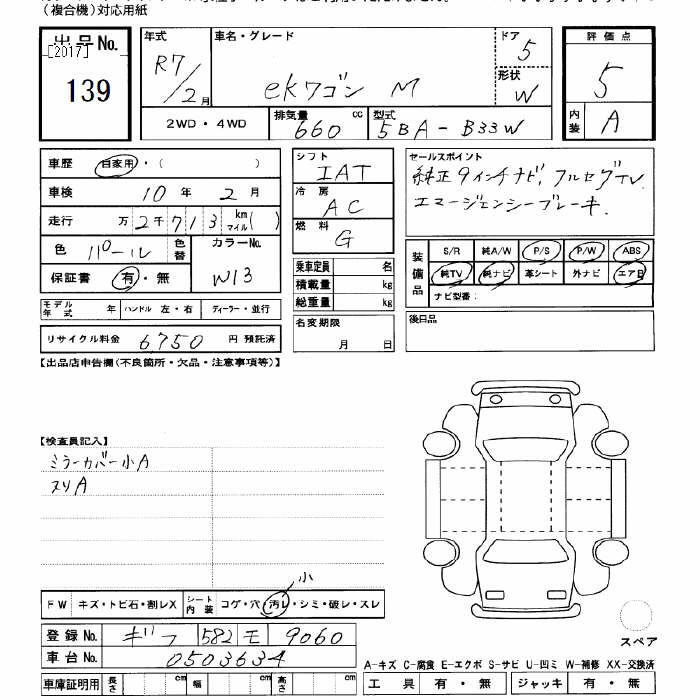 （複合機）対応用紙
出品No.
[2017]
139
年式
R7/2月
車名・グレード
ekワゴン M
ドア
5
形状
W
評価点
5
内装
A
2WD・4WD
排気量
660 cc
型式
5BA-B33W
車歴 自家用・（ ）
車検 10年 2月
走行 万2千713 km マイル( )
色 パール 色替
カラーNo.
W13
保証書 有・無
モデル年式 年 ハンドル 左・右 ディーラー・並行
リサイクル料金 6750 円 預託済
シフト
IAT
冷房
AC
燃料
G
乗車定員 名
積載量 kg
総重量 kg
名変期限
月 日
セールスポイント
純正9インチナビ、フルセグTV
エマージェンシーブレーキ.
装備品
S/R 純A/W P/S P/W ABS
純TV 純ナビ 革シート 外ナビ エアB
ナビ型番：
後日品
【出品店申告欄（不良箇所・欠品・注意事項等）】
【検査員記入】
ミラーカバー小A
ヌリA
小
FW キズ・トビ石・割レX シート内装 コゲ・穴 汚レ・シミ・破レ・スレ
登録No. ギフ 582 モ 9060
車台No. 0503634
車庫証明用 長さ cm 幅 cm 高さ cm
スペア
A-キズ C-腐食 E-エクボ S-サビ U-凹ミ W-補修 XX-交換済
工具 有・無 ジャッキ 有・無